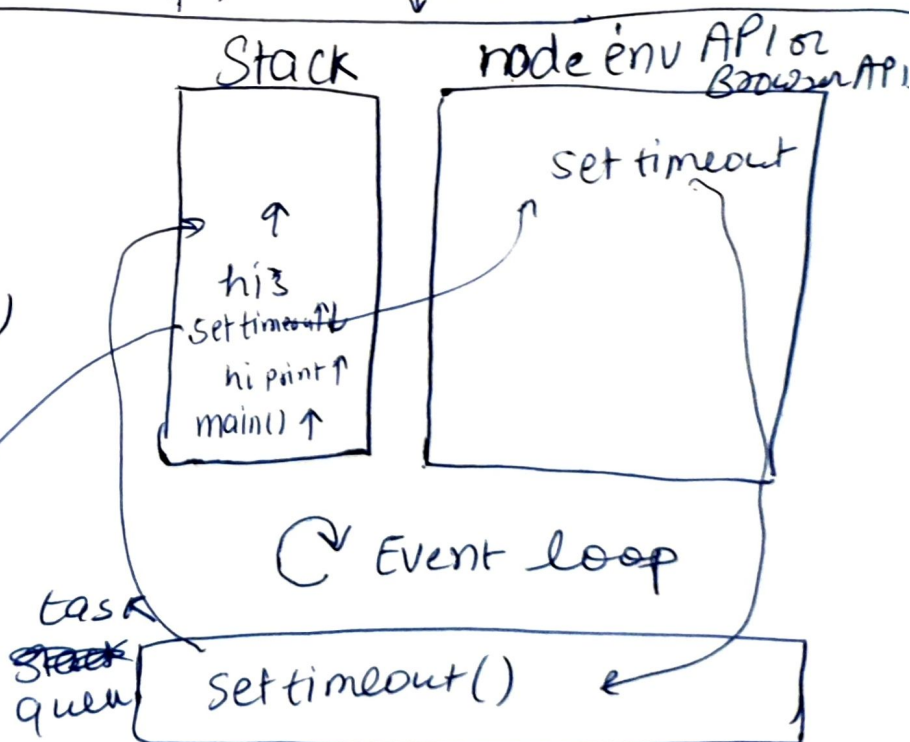 Stack
node env API or
Browser API
set timeout
hi3
set timeout
hi print
main()
Event loop
task
Stack
queu
set timeout()